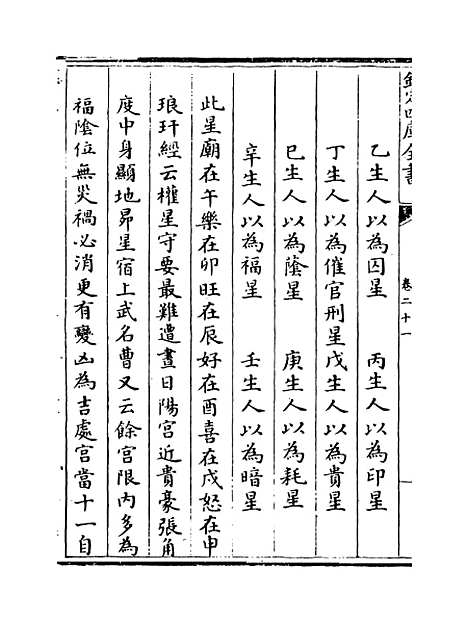 欽定四庫全書
卷二十一
乙生人以為囚星 丙生人以為印星
丁生人以為催官刑星戊生人以為貴星
巳生人以為蔭星 庚生人以為耗星
辛生人以為福星 壬生人以為暗星
此星廟在午樂在卯旺在辰好在酉喜在戌怒在申
琅玕經云權星守要最難遭晝日陽宮近貴豪張角
度中身顯地昴星宿上武名曹又云餘宮限內多為
福陰位無災禍必消更有變凶為吉處宮當十一自